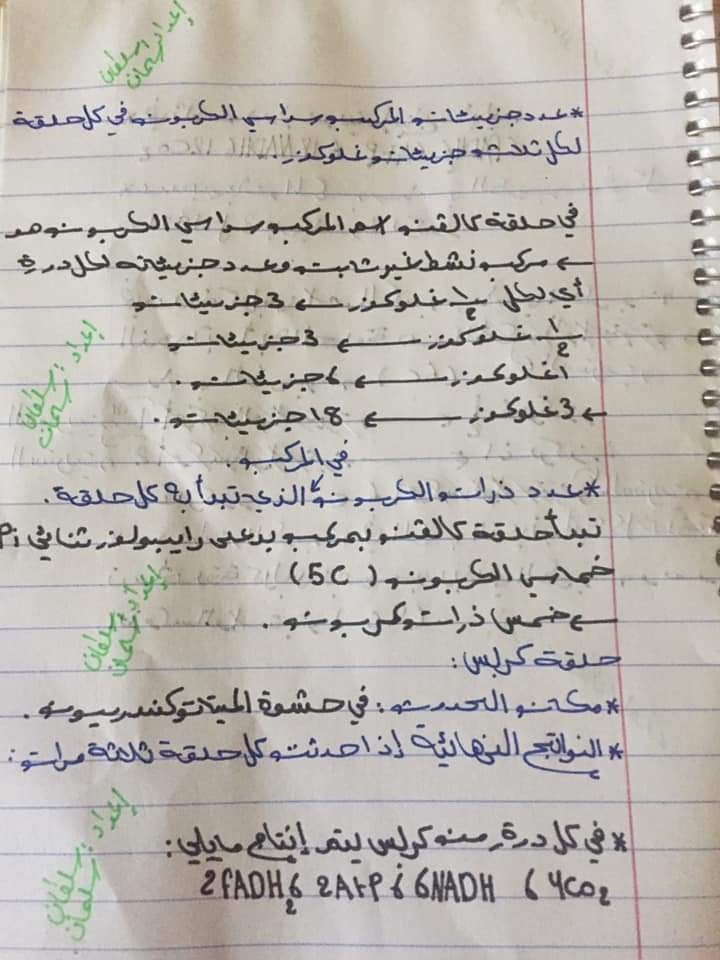 إعداد: سلمان سلمان
* عدد جزيئات المركب سداسي الكربون في كل حلقة
لكل ثلاث جزيئات غلوكوز.
في حلقة كالفن المركب سداسي الكربون هو
← مركب نشط غير ثابت وعدد جزيئاته لكل درة
أي لكل 1/2 غلوكوز ← 3 جزيئات
1/2 غلوكوز ← 3 جزيئات
1 غلوكوز ← 6 جزيئات.
← 3 غلوكوز ← 18 جزيئات.
في المركب.
* عدد ذرات الكربون الذي تبدأ به كل حلقة.
تبدأ حلقة كالفن بمركب يدعى رايبولوز ثنائي Pi
خماسي الكربون (5C)
← خمس ذرات كربون.
إعداد: سلمان سلمان
حلقة كربس:
* مكان الحدوث: في حشوة الميتاتوكندريون.
* النواتج النهائية إذا حدثت كل حلقة ثلاثة مرات:
* في كل درة من كربس يتم إنتاج مايلي:
2FADH2 ، 2ATP ، 6NADH ، 4CO2
إعداد: سلمان سلمان